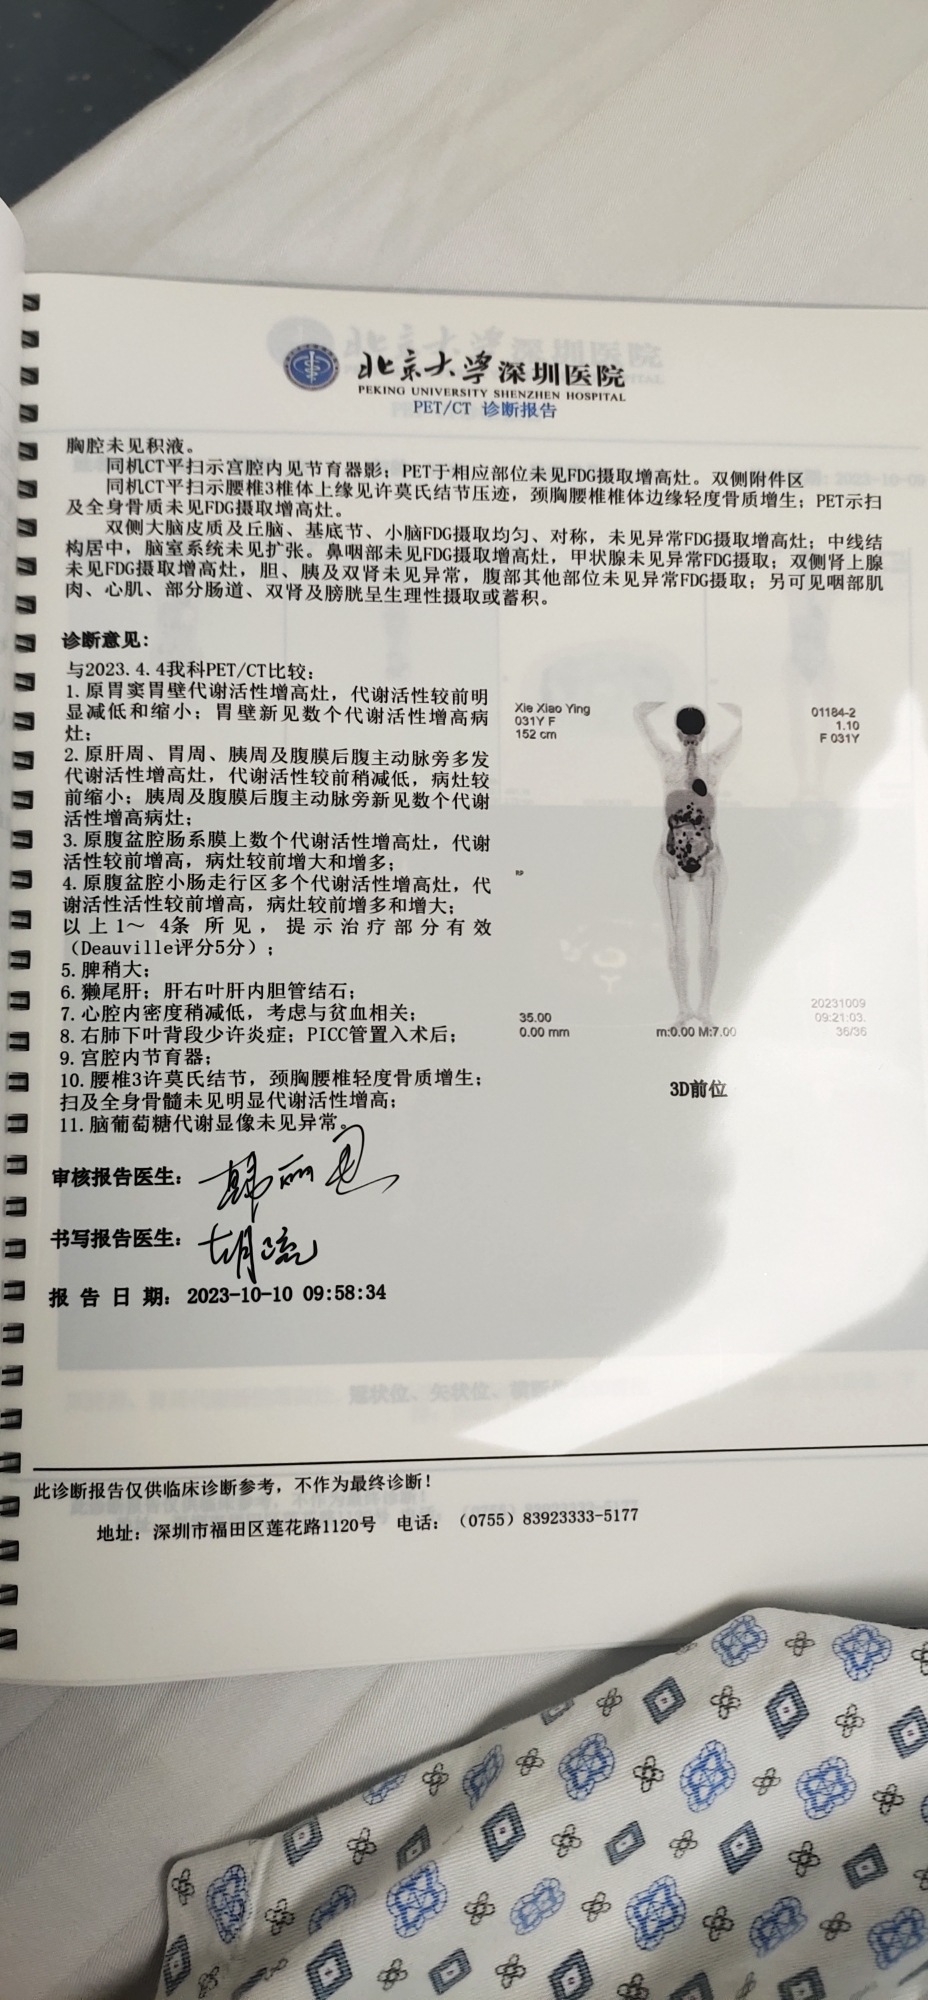 北京大学深圳医院
PEKING UNIVERSITY SHENZHEN HOSPITAL
PET/CT 诊断报告
胸腔未见积液。
同机CT平扫示宫腔内见节育器影；PET于相应部位未见FDG摄取增高灶。双侧附件区
同机CT平扫示腰椎3椎体上缘见许莫氏结节压迹，颈胸腰椎椎体边缘轻度骨质增生；PET示扫
及全身骨质未见FDG摄取增高灶。
双侧大脑皮质及丘脑、基底节、小脑FDG摄取均匀、对称，未见异常FDG摄取增高灶；中线结
构居中，脑室系统未见扩张。鼻咽部未见FDG摄取增高灶，甲状腺未见异常FDG摄取；双侧肾上腺
未见FDG摄取增高灶，胆、胰及双肾未见异常，腹部其他部位未见异常FDG摄取；另可见咽部肌
肉、心肌、部分肠道、双肾及膀胱呈生理性摄取或蓄积。
诊断意见：
与2023.4.4我科PET/CT比较：
1.原胃窦胃壁代谢活性增高灶，代谢活性较前明
显减低和缩小；胃壁新见数个代谢活性增高病
灶；
2.原肝周、胃周、胰周及腹膜后腹主动脉旁多发
代谢活性增高灶，代谢活性较前稍减低，病灶较
前缩小；胰周及腹膜后腹主动脉旁新见数个代谢
活性增高病灶；
3.原腹盆腔肠系膜上数个代谢活性增高灶，代谢
活性较前增高，病灶较前增大和增多；
4.原腹盆腔小肠走行区多个代谢活性增高灶，代
谢活性活性较前增高，病灶较前增多和增大；
以上1～ 4条 所见，提示治疗部分有效
（Deauville评分5分）；
5.脾稍大；
6.獭尾肝；肝右叶肝内胆管结石；
7.心腔内密度稍减低，考虑与贫血相关；
8.右肺下叶背段少许炎症；PICC管置入术后；
9.宫腔内节育器；
10.腰椎3许莫氏结节，颈胸腰椎轻度骨质增生；
扫及全身骨髓未见明显代谢活性增高；
11.脑葡萄糖代谢显像未见异常。
Xie Xiao Ying
031Y F
152 cm
01184-2
1.10
F 031Y
RP
35.00
0.00 mm
m:0.00 M:7.00
20231009
09:21:03.
36/36
3D前位
审核报告医生：
书写报告医生：
报 告 日 期： 2023-10-10 09:58:34
此诊断报告仅供临床诊断参考，不作为最终诊断！
地址：深圳市福田区莲花路1120号 电话：（0755）83923333-5177